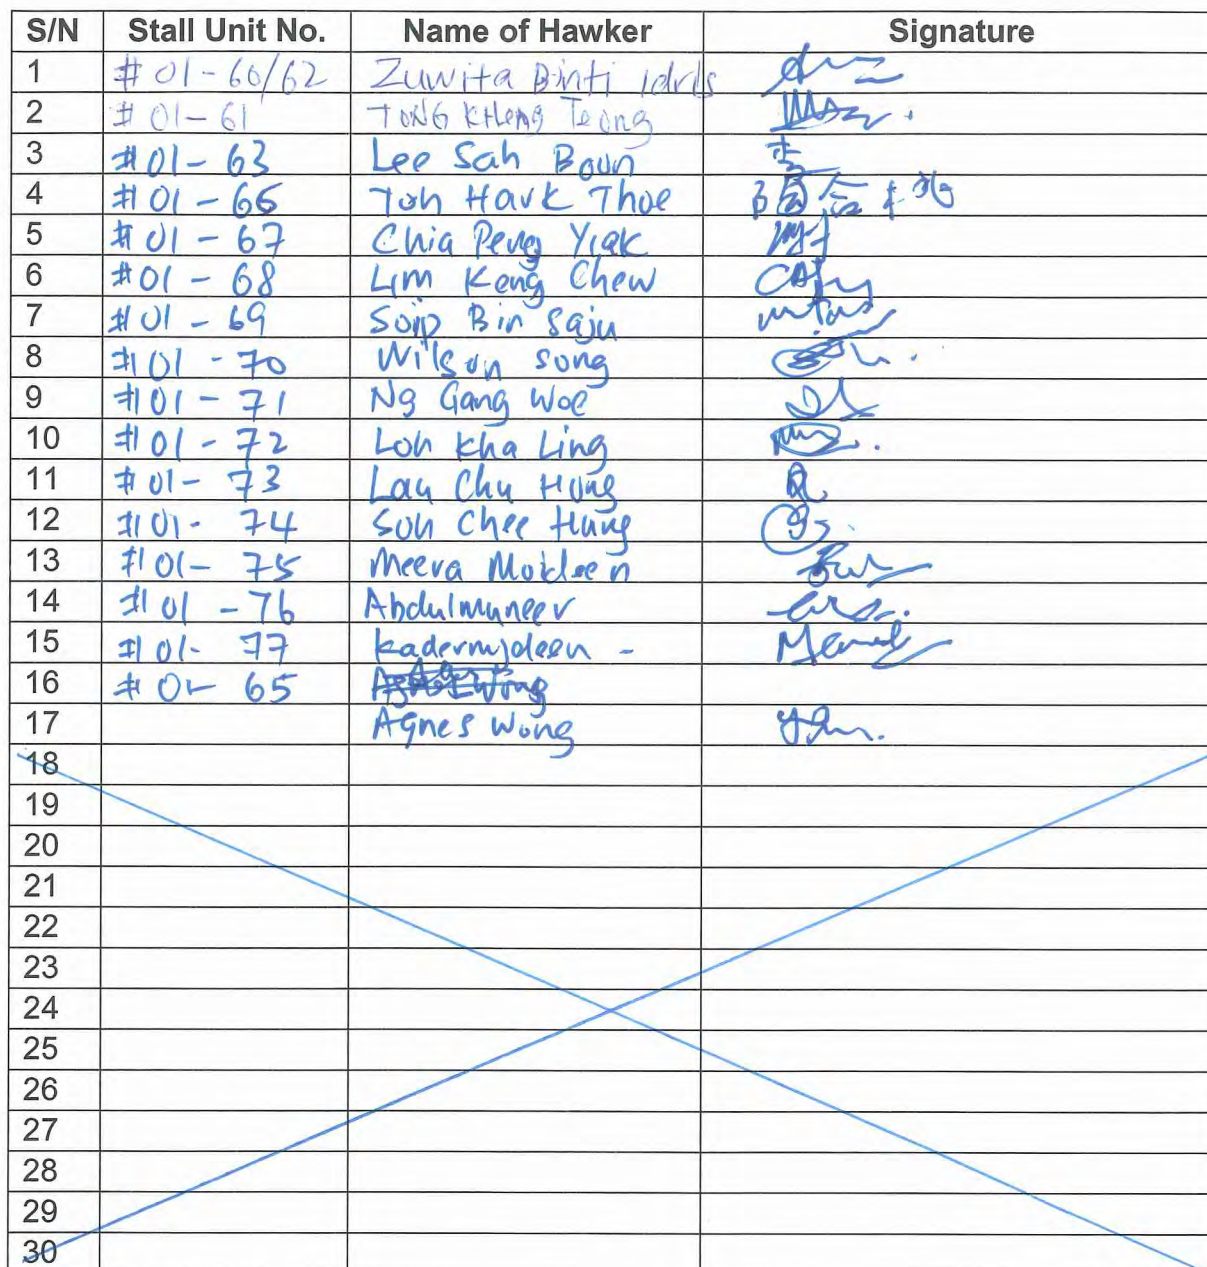 S/N Stall Unit No. Name of Hawker Signature
1 #01-60/62 Zuwita Binti Idris
2 #01-61 TONG KHENG Teong
3 #01-63 Lee Sah Boun
4 #01-66 Toh Hark Thoe
5 #01-67 Chia Peng Yiak
6 #01-68 Lim Keng Chew
7 #01-69 Soip Bin Saju
8 #01-70 Wilson Song
9 #01-71 Ng Gang Woe
10 #01-72 Loh Kha Ling
11 #01-73 Lau Chu Hong
12 #01-74 Soh Chee Hung
13 #01-75 Meera Moideen
14 #01-76 Abdulmuneer
15 #01-77 Kadermydeen -
16 #01-65
17 Agnes Wong
18
19
20
21
22
23
24
25
26
27
28
29
30